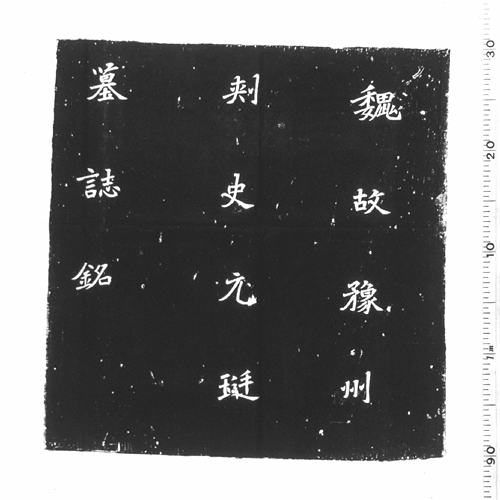 魏故豫州
刺史元珽
墓誌銘
30
20
10
1m
90